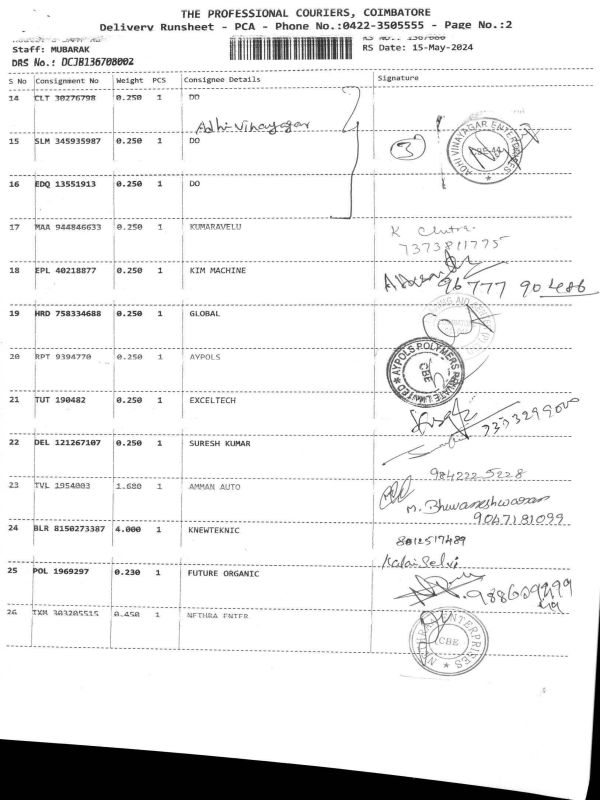 THE PROFESSIONAL COURIERS, COIMBATORE
Delivery Runsheet - PCA - Phone No.:0422-3505555 - Page No.:2
Staff: MUBARAK
RS Date: 15-May-2024
DRS No.: DCJB136708002
S No Consignment No Weight PCS Consignee Details Signature
14 CLT 30276798 0.250 1 DO
Adhi Vinayagar
15 SLM 345935987 0.250 1 DO
3
ADHI VINAYAGAR ENTERPRISES
16 EDQ 13551913 0.250 1 DO
17 MAA 944846633 0.250 1 KUMARAVELU
K
7373811775
18 EPL 40218877 0.250 1 KIM MACHINE
96777 90486
19 HRD 758334688 0.250 1 GLOBAL
20 RPT 9394770 0.250 1 AYPOLS
AYPOLS POLYMERS PRIVATE LIMITED
CBE
21 TUT 190482 0.250 1 EXCELTECH
22 DEL 121267107 0.250 1 SURESH KUMAR
984222 5228
23 TVL 1954003 1.680 1 AMMAN AUTO
M. Bhuvaneshwaran
9047181099
24 BLR 8150273387 4.000 1 KNEWTEKNIC
8012517489
Kalai Selvi
25 POL 1969297 0.230 1 FUTURE ORGANIC
26 TXM 303205515 0.450 1 NETHRA ENTER
NETHRA ENTERPRISES
CBE